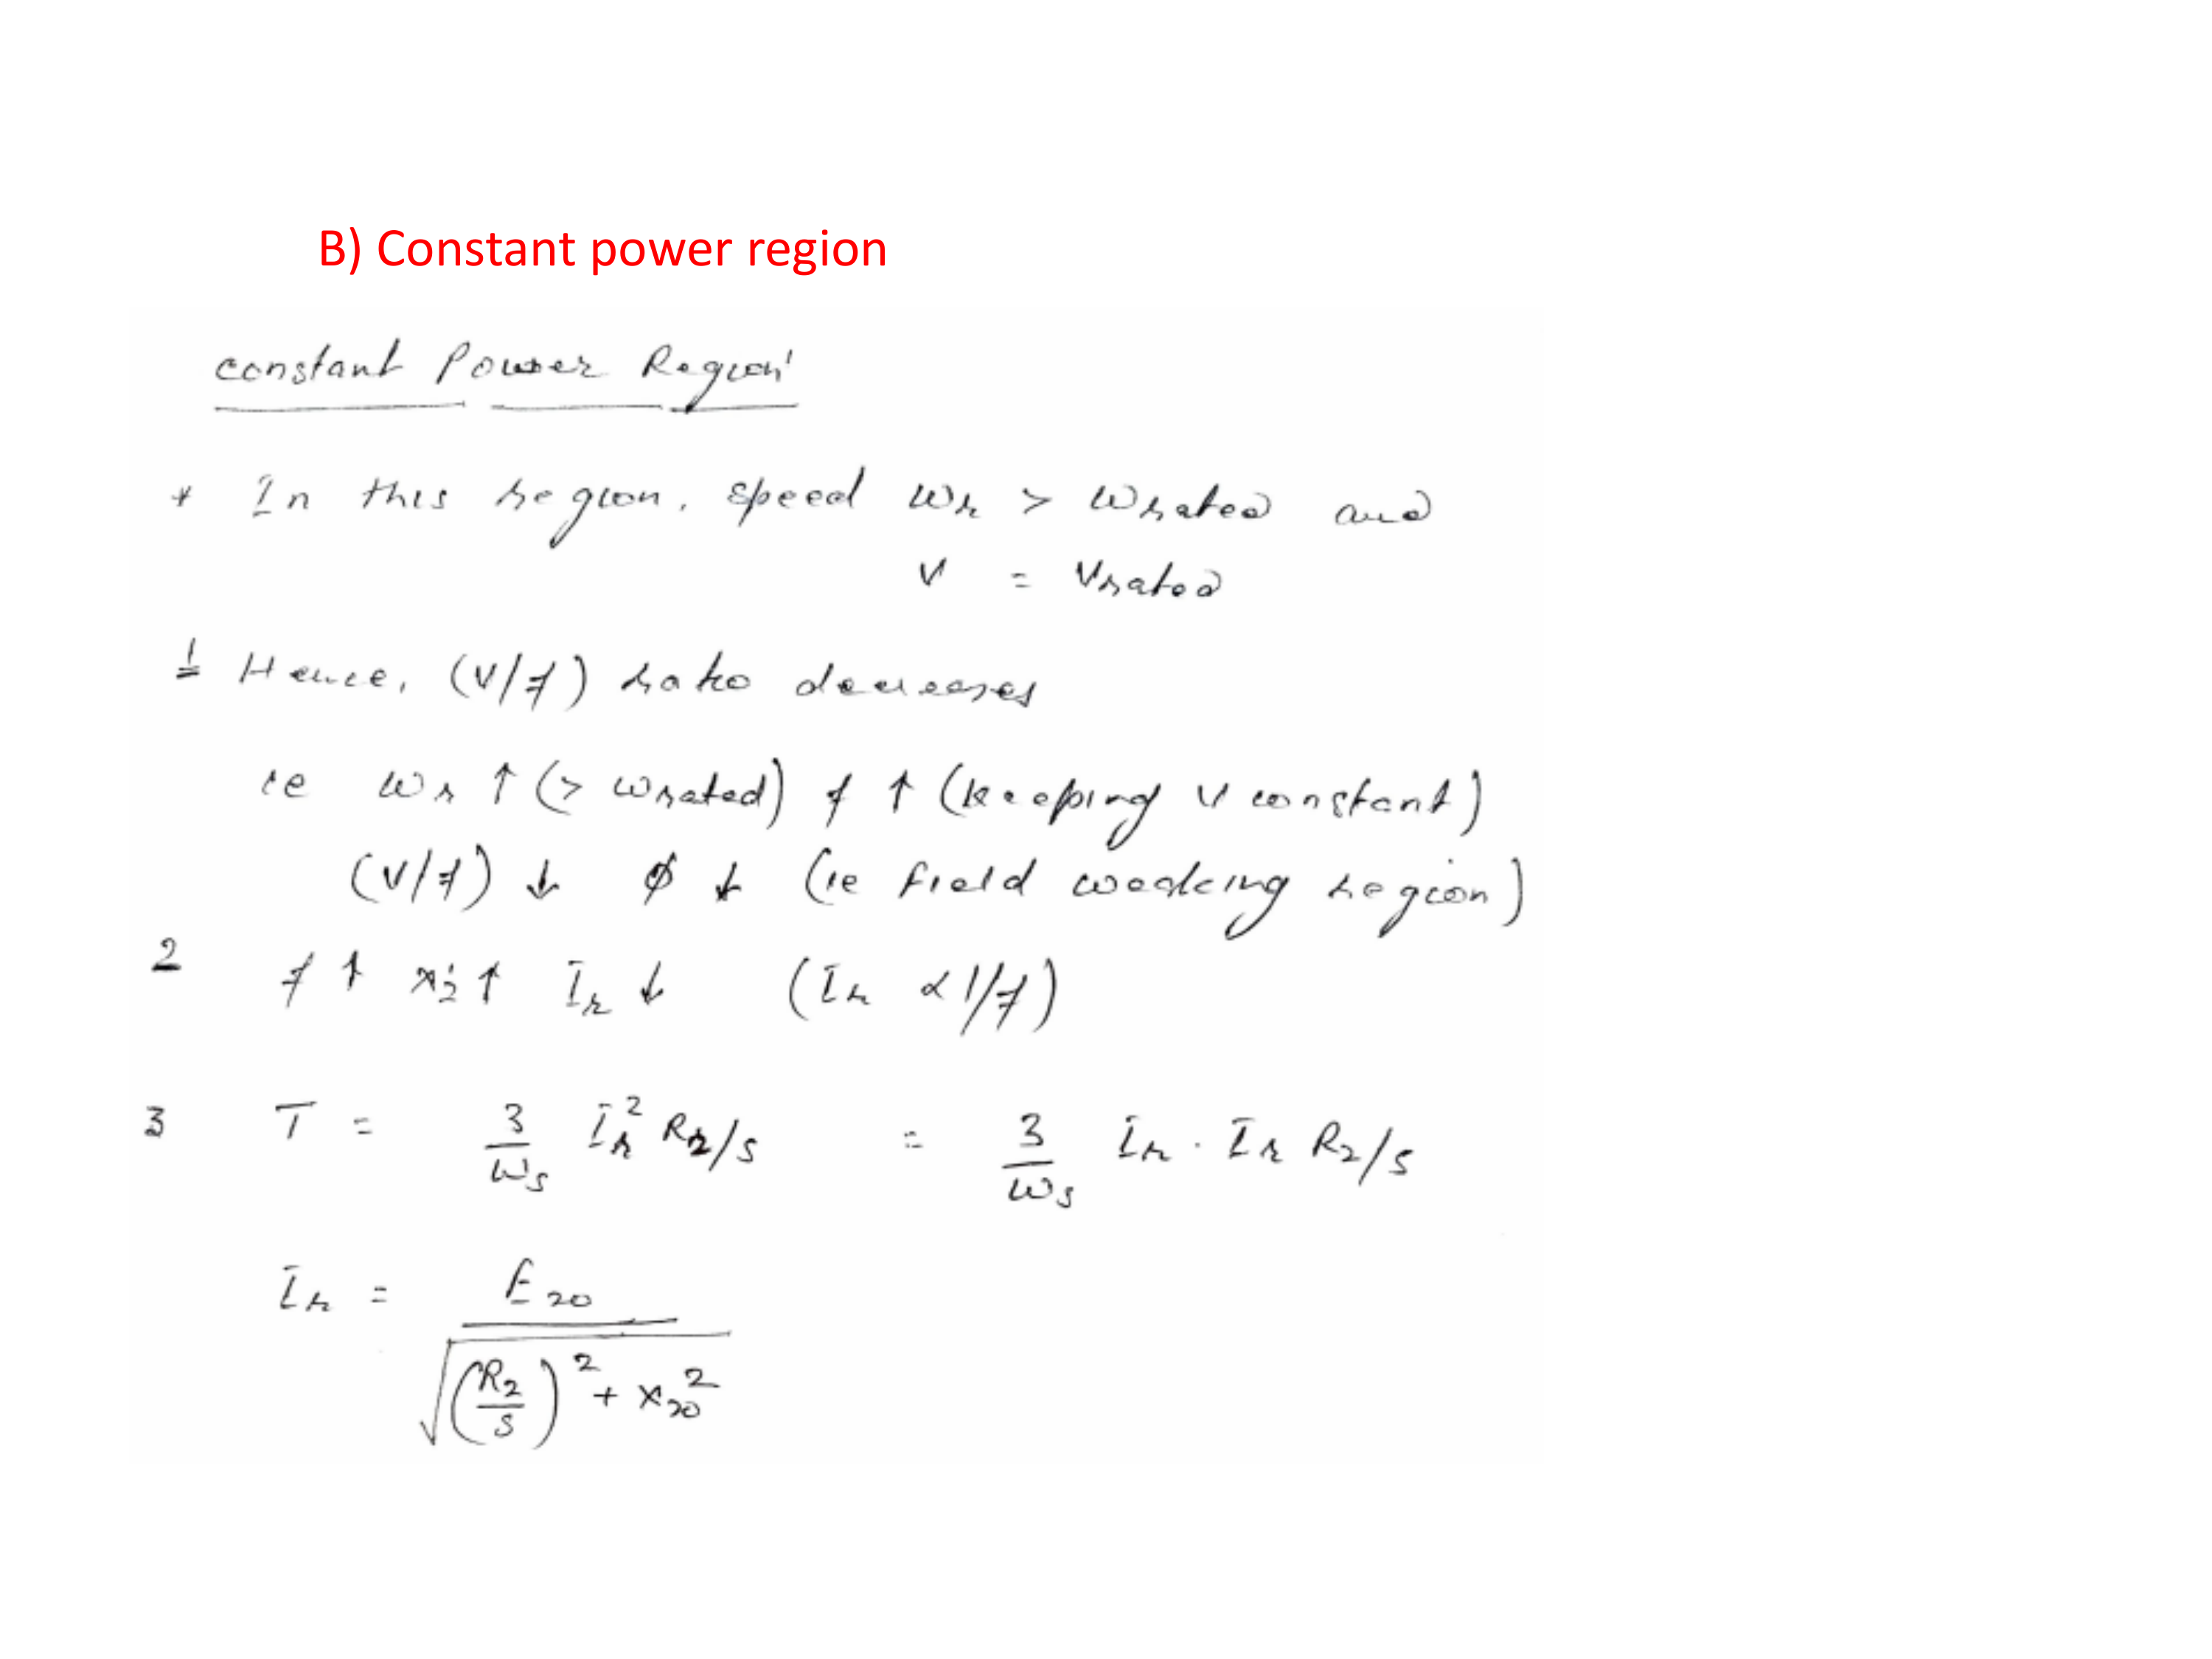 B) Constant power region
constant Power Region
* In this region, speed ωr > ωrated and
V = Vrated
1 Hence, (V/f) ratio decreases
ie ωr ↑ (> ωrated) f ↑ (keeping V constant)
(V/f) ↓ φ ↓ (ie field weaking region)
2 f ↑ x2' ↑ Ir ↓ (Ir ∝ 1/f)
3 T = 3/ωs Ir² R2/s = 3/ωs Ir . Ir R2/s
Ir = E20 / √((R2/s)² + x20²)